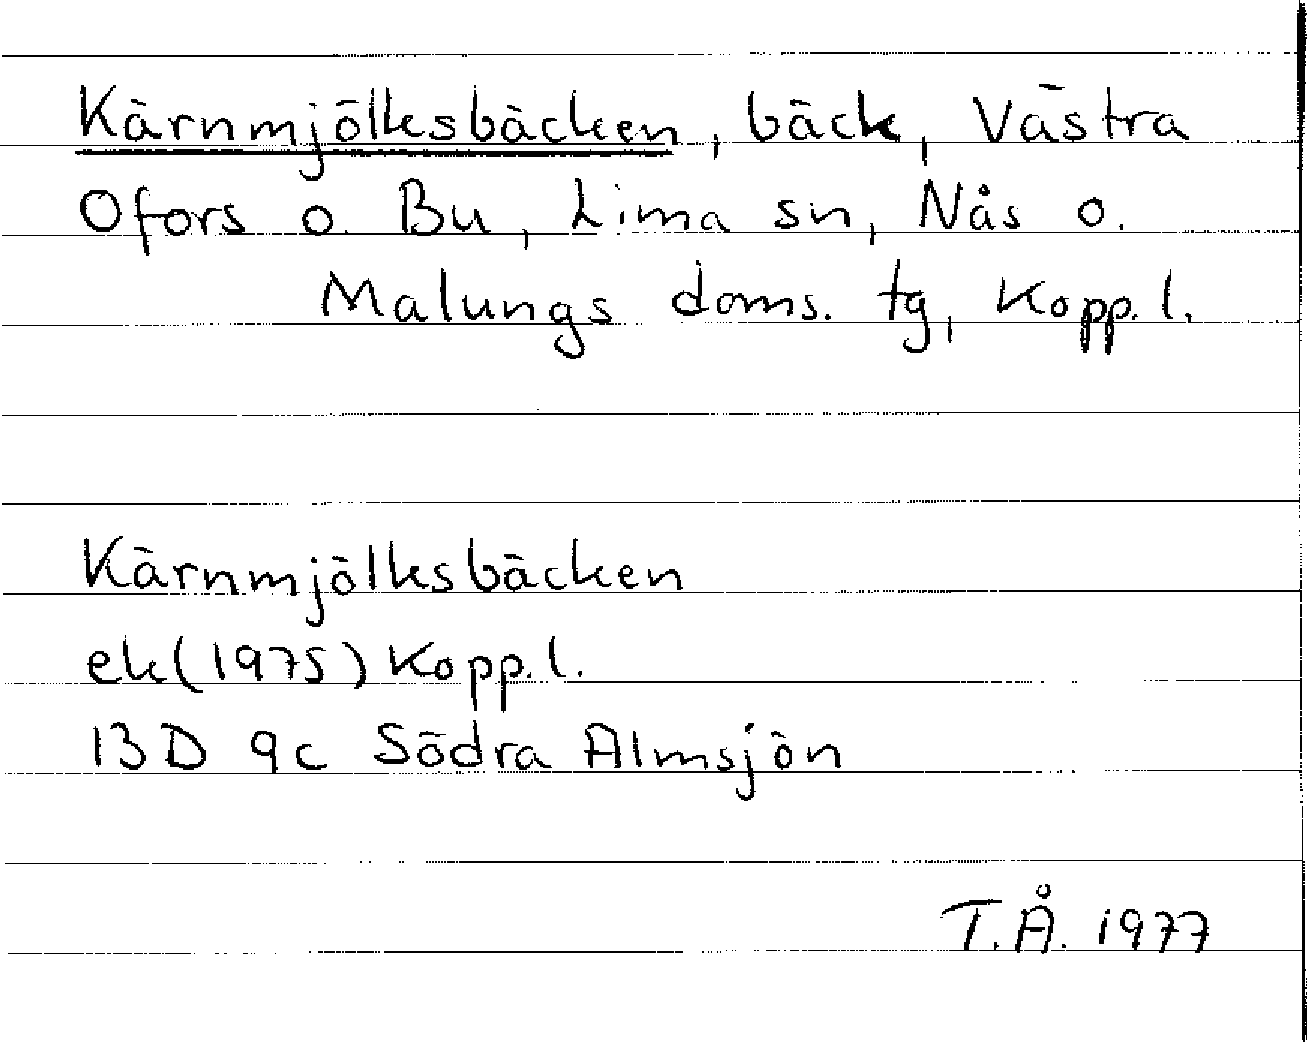 Kärnmjölksbäcken, bäck, Västra
Ofors o. Bu, Lima sn, Nås o.
Malungs doms. tg, Kopp. l.
Kärnmjölksbäcken
ek(1975) Kopp. l.
13D 9c Södra Almsjön
T.Å. 1977